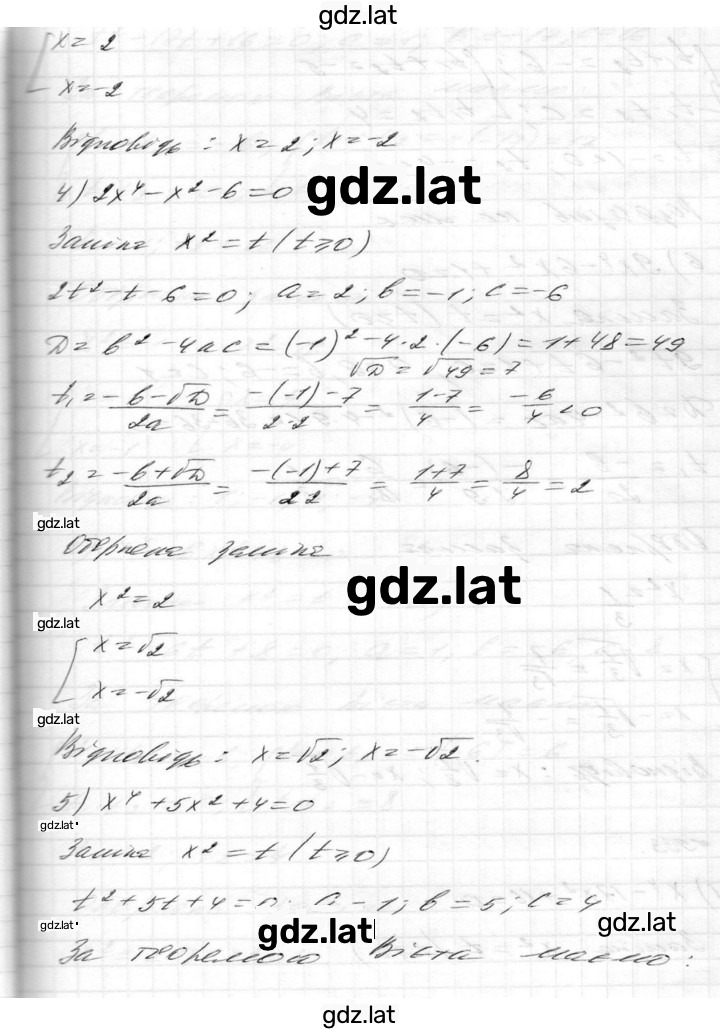 gdz.lat
x = 2
x = -2
Відповідь : x = 2 ; x = -2
4) 2x⁴ - x² - 6 = 0
gdz.lat
Заміна x² = t (t ≥ 0)
2t² - t - 6 = 0; a = 2; b = -1; c = -6
D = b² - 4ac = (-1)² - 4·2·(-6) = 1 + 48 = 49
√D = √49 = 7
t₁ = (-b - √D)/2a = (-(-1) - 7)/2·2 = (1 - 7)/4 = -6/4 < 0
t₂ = (-b + √D)/2a = (-(-1) + 7)/2·2 = (1 + 7)/4 = 8/4 = 2
gdz.lat
заміна
gdz.lat
x² = 2
gdz.lat
x = √2
x = -√2
gdz.lat
Відповідь : x = √2; x = -√2.
5) x⁴ + 5x² + 4 = 0
gdz.lat
Заміна x² = t (t ≥ 0)
t² + 5t + 4 = 0; a = 1; b = 5; c = 4
gdz.lat
gdz.lat
gdz.lat
За теоремою Вієта маємо:
gdz.lat